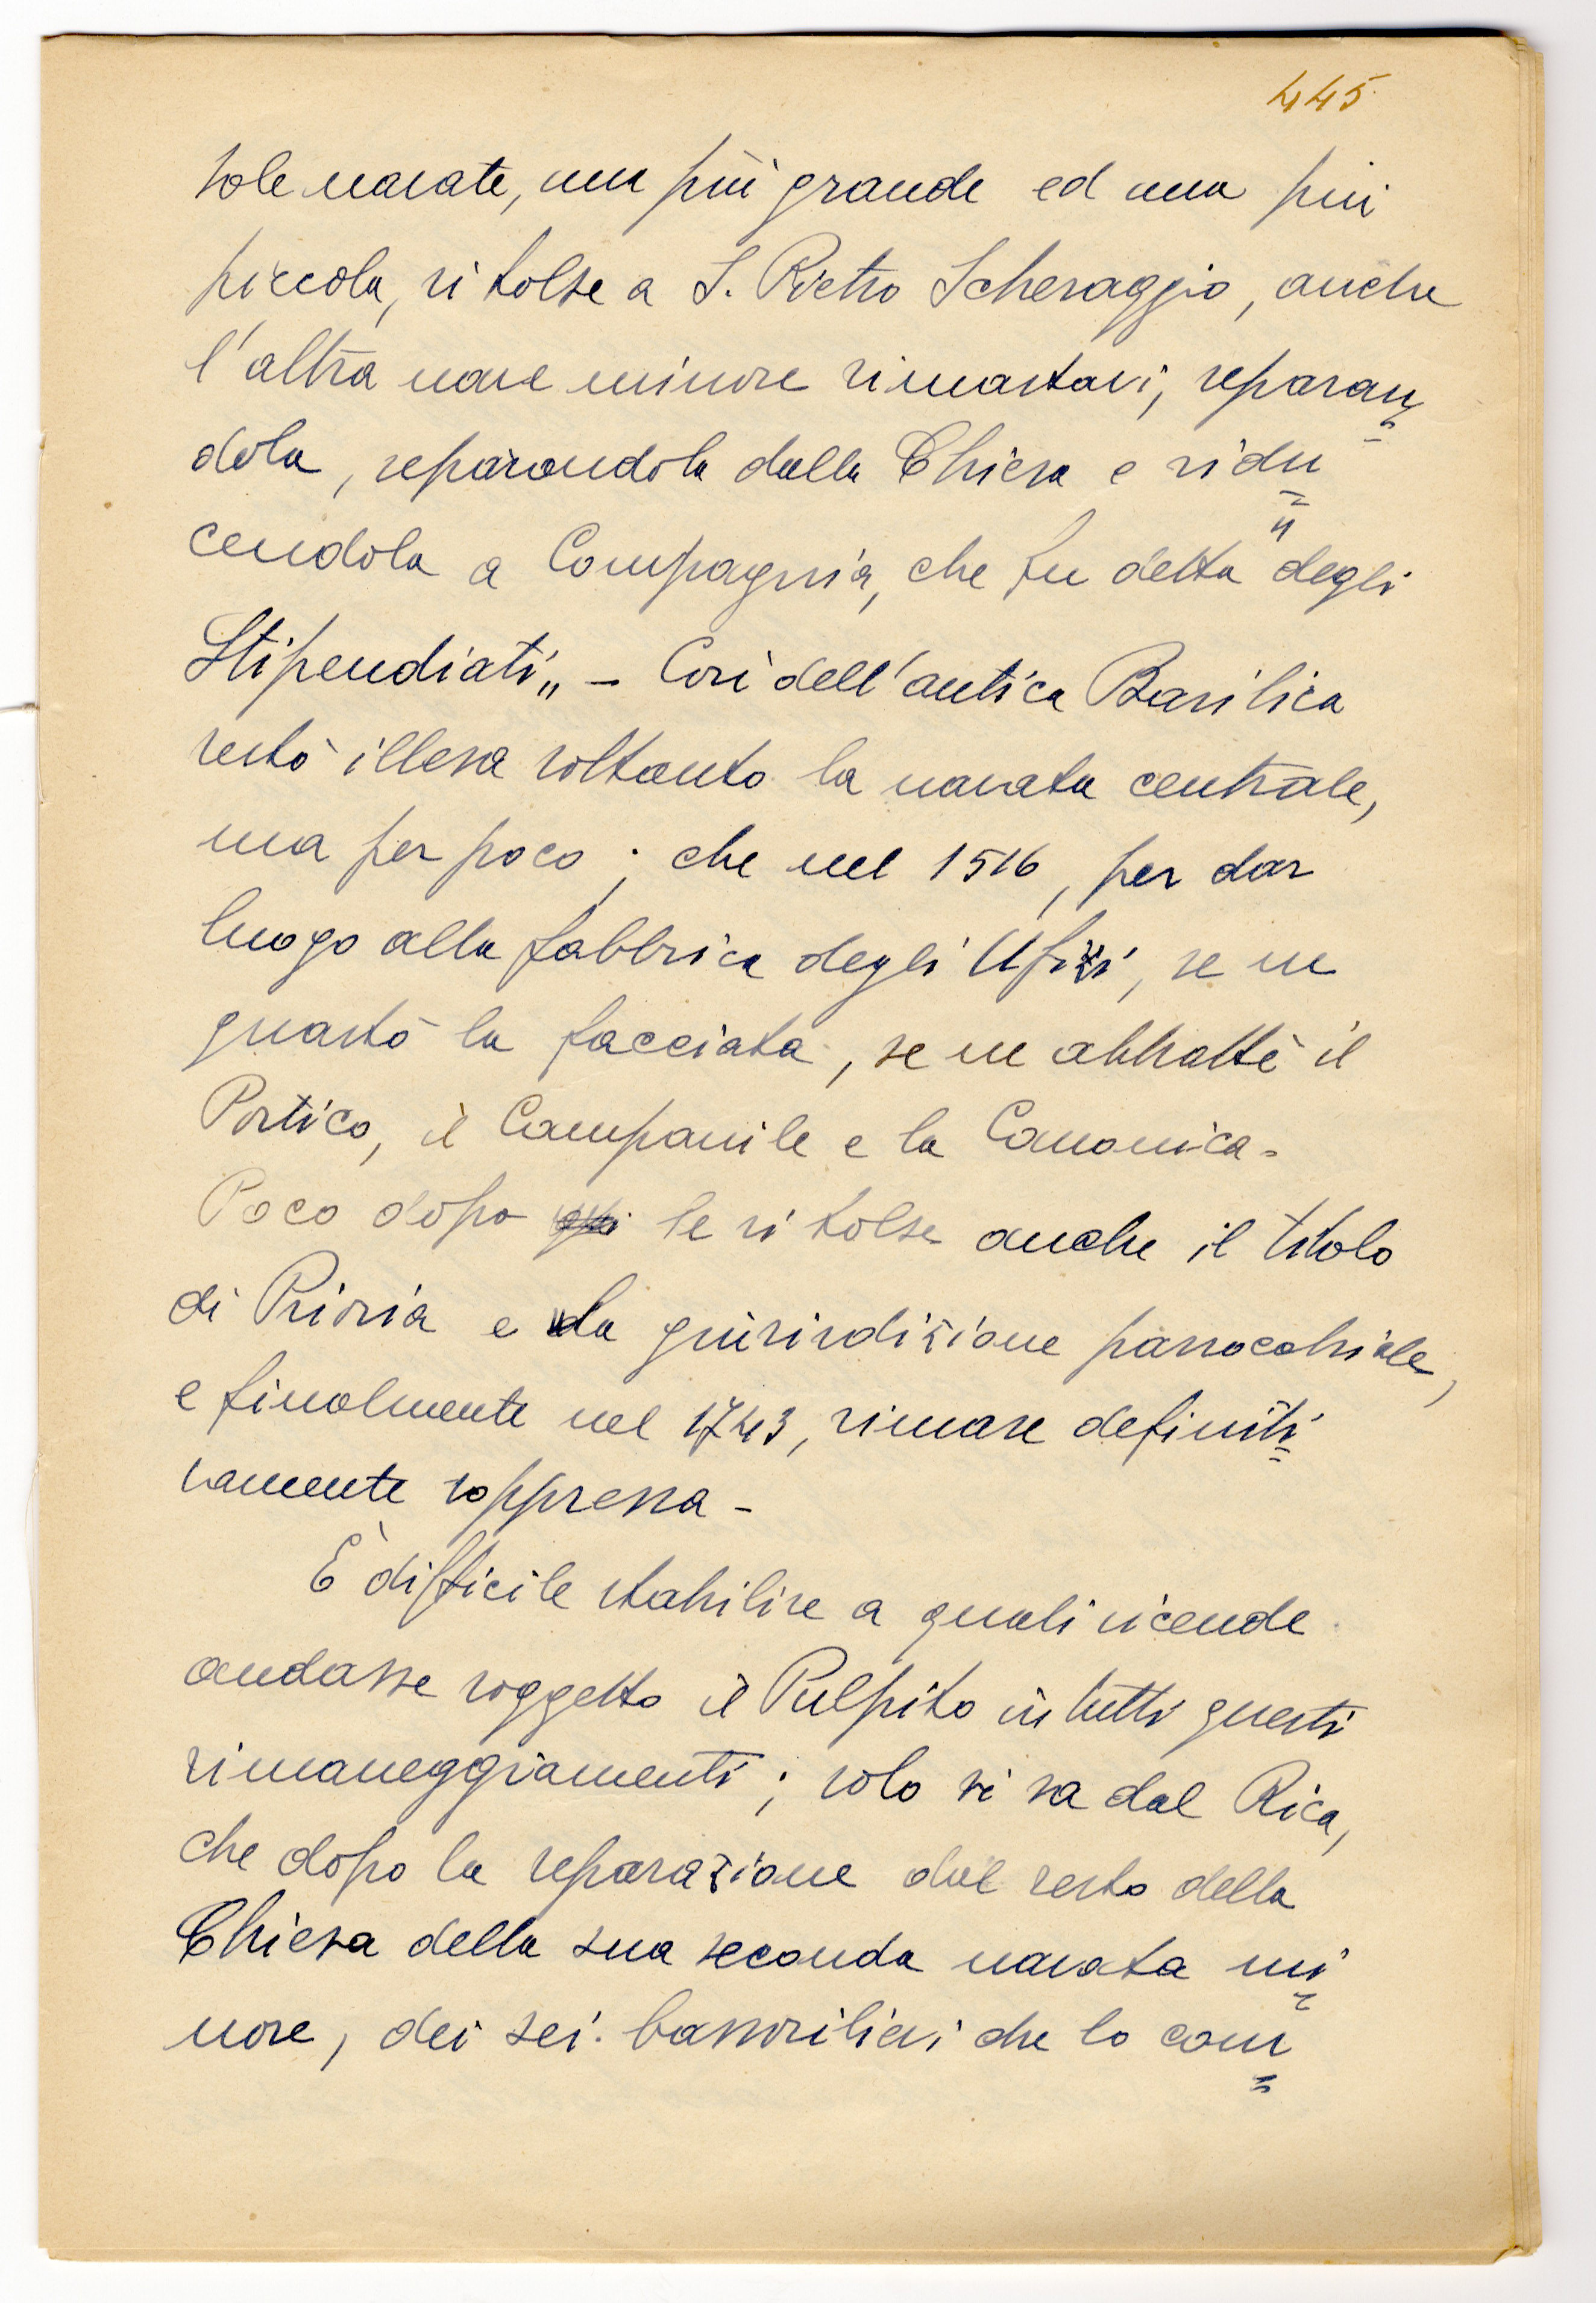 445
sole navate, una più grande ed una più
piccola, si tolse a S. Pietro Scheraggio, anche
l'altra nave minore rimastavi, separan=
dola, separandola dalla Chiesa e ridu=
cendola a Compagnia, che fu detta "degli
Stipendiati„ - Così dell'antica Basilica
restò illesa soltanto la navata centrale,
ma per poco; che nel 1516, per dar
luogo alla fabbrica degli Ufizi, se ne
guastò la facciata, se ne abbattè il
Portico, il Campanile e la Canonica.
Poco dopo le si tolse anche il titolo
di Prioria e la giurisdizione parrocchiale,
e finalmente nel 1743, rimase definiti=
vamente soppressa -
È difficile stabilire a quali vicende
andasse soggetto il Pulpito in tutti questi
rimaneggiamenti; solo si sa dal Rica,
che dopo la separazione dal resto della
Chiesa della sua seconda navata mi=
nore, dei sei bassorilievi che lo com=